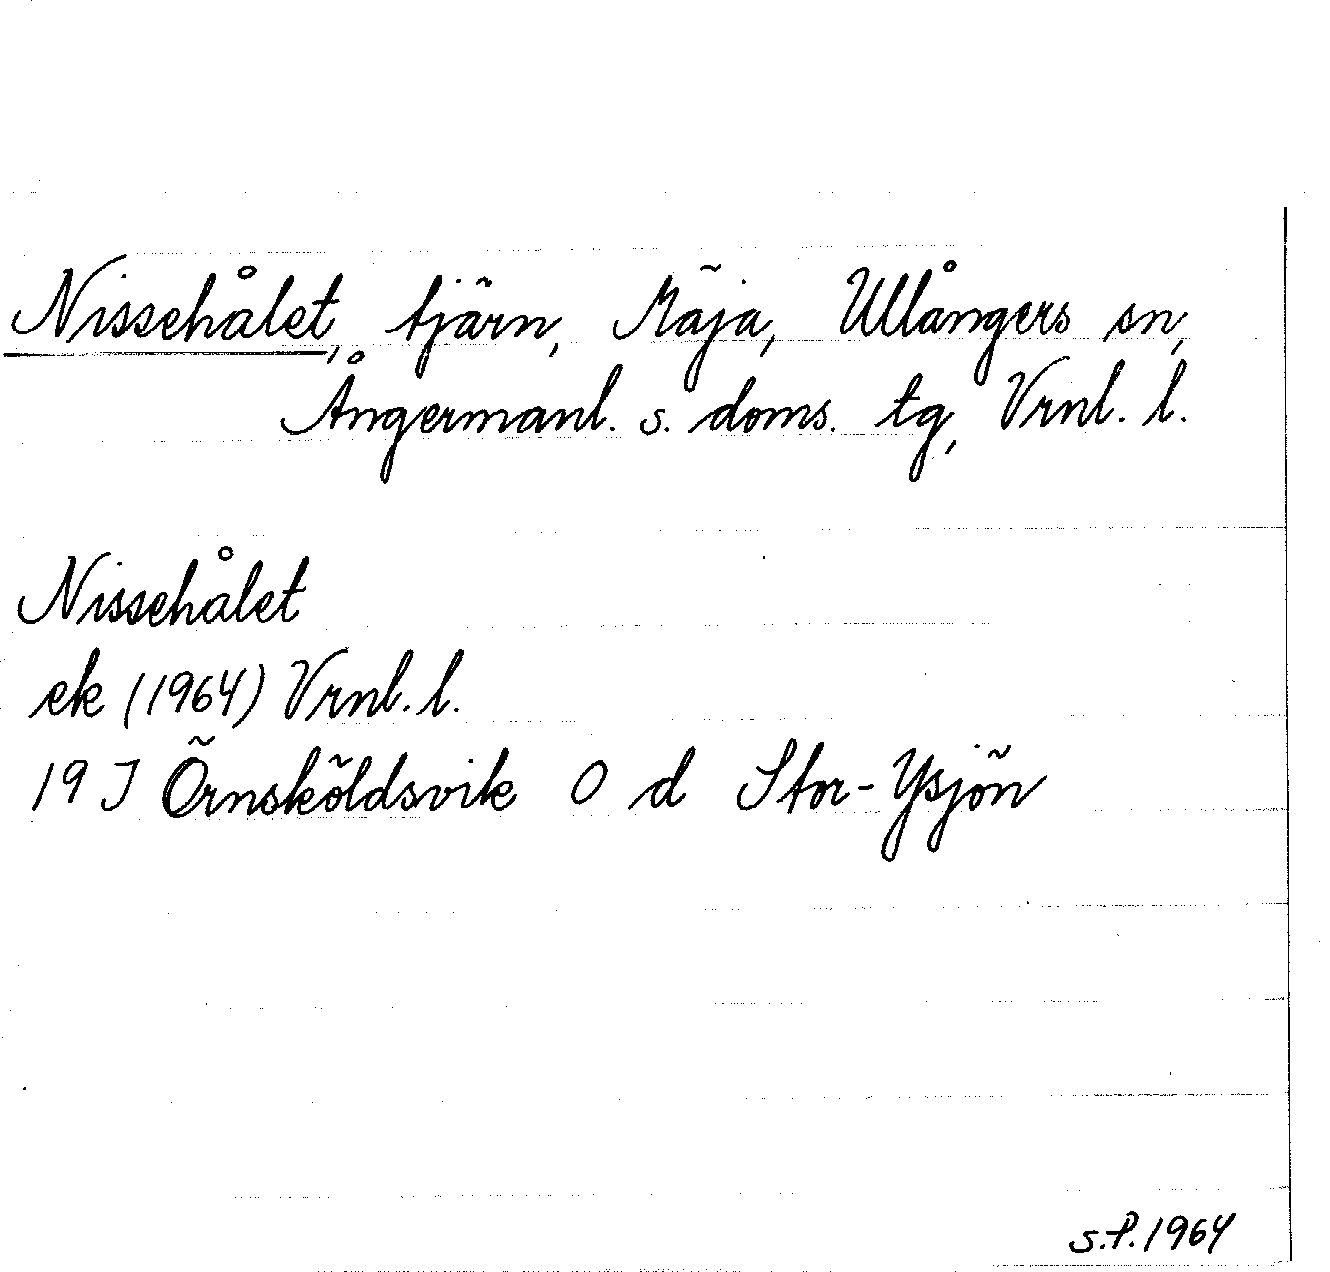 Nissehålet, tjärn, Mäja, Ullångers sn,
Ångermanl. s. doms. tg, Vrnl. l.
Nissehålet
ek (1964) Vrnl. l.
19 J Örnsköldsvik O d Stor-Ysjön
S.P. 1964